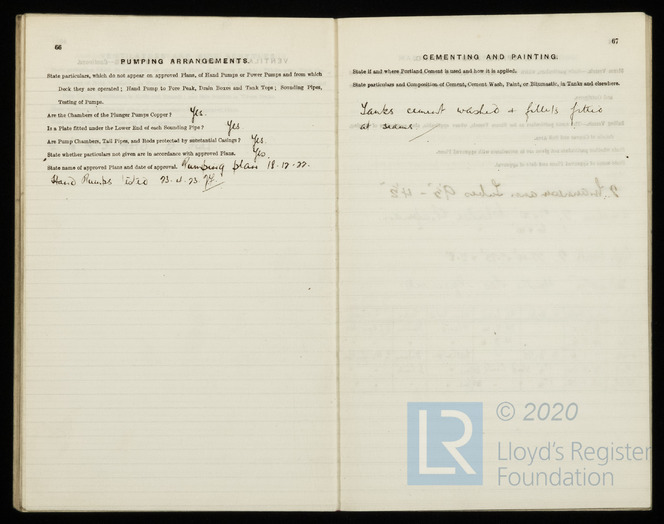 66
PUMPING ARRANGEMENTS.
State particulars, which do not appear on approved Plans, of Hand Pumps or Power Pumps and from which
Deck they are operated; Hand Pump to Fore Peak, Drain Boxes and Tank Tops; Sounding Pipes,
Testing of Pumps.
Are the Chambers of the Plunger Pumps Copper? Yes.
Is a Plate fitted under the Lower End of each Sounding Pipe? Yes
Are Pump Chambers, Tail Pipes, and Rods protected by substantial Casings? Yes
State whether particulars not given are in accordance with approved Plans. Yes.
State name of approved Plans and date of approval. Pumping plan 18.12.22.
Hand Pumps tested 23.4.23
67
CEMENTING AND PAINTING.
State if and where Portland Cement is used and how it is applied.
State particulars and Composition of Cement, Cement Wash, Paint, or Bitumastic, in Tanks and elsewhere.
Tanks cement washed + fillets fitted
at seams
LR
© 2020
Lloyd's Register
Foundation